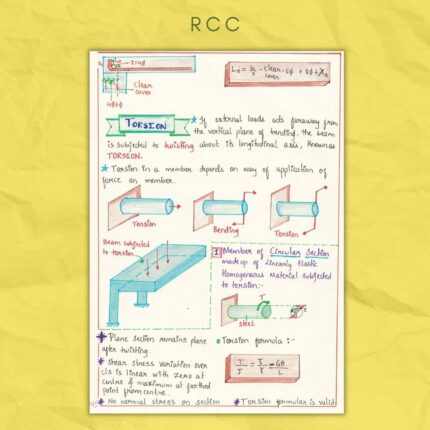 RCC
Clear
cover
TORSION
* If external loads acts faraway from
the vertical plane of bending, the beam
is subjected to twisting about its longitudinal axis, known as
TORSION.
* Torsion in a member depends on way of application of
force on member.
Tension
Bending
Torsion
Beam subjected
to torsion
1 Member of Circular Section
made up of Linearly Elastic
Homogeneous Material subjected
to torsion:-
T
steel
* Plane section remains plane
after twisting.
* Shear stress variation over
c/s is linear with zero at
centre & maximum at farthest
point from centre.
* No normal stress on section
Torsion formula :-
* Torsion formula is valid